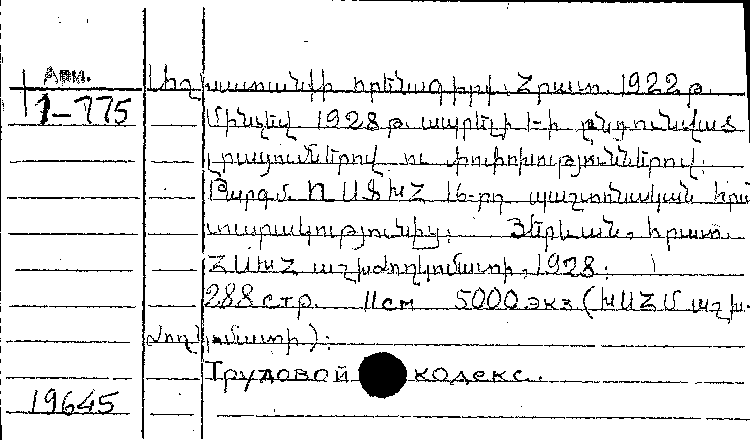 Арм.
1-775
աշխատանքի օրենսգիրք. Հրատ. 1922թ.
Մինչև 1928թ. ապրիլի 1-ի ընդունված
լրացումներով ու փոփոխություններով:
Թարգմ. ՌՍՖԽՀ 16-րդ պաշտոնական հրա
տարակությունից: Յերևան, հրատ.
ՀՍԽՀ աշխժողկոմատի, 1928:
288 стр. 11см 5000 экз (ԽՍՀՄ աշխ-
ժողկոմատի):
Трудовой кодекс.
19645